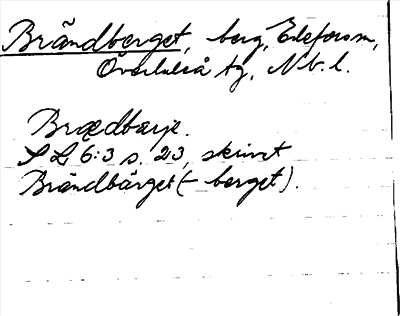 Brändberget, berg, Edefors sn,
Överluleå tg, Nb. l.
Brædbærje.
SL 6:3 s. 23, skrivet
Brändbärget (- berget).